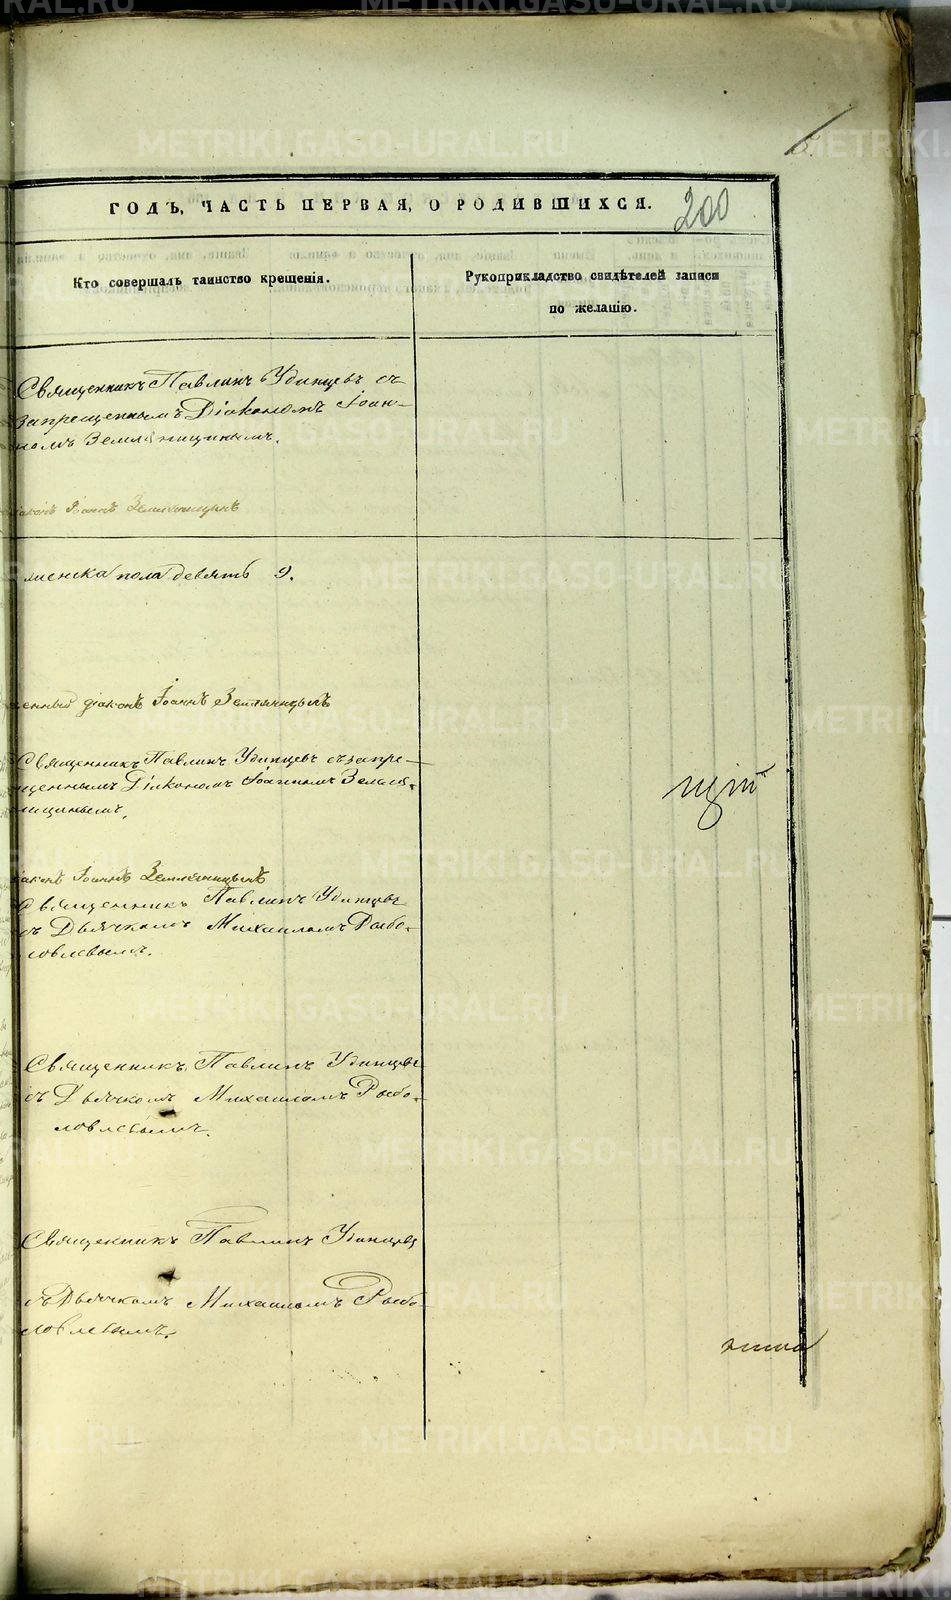 6
ГОДЪ, ЧАСТЬ ПЕРВАЯ, О РОДИВШИХСЯ.
200
Кто совершалъ таинство крещенія.
Рукоприкладство свидѣтелей записи
по желанію.
Священникъ Павлинъ Удинцевъ съ
запрещеннымъ Діакономъ Іоан-
номъ Земляницинымъ.
діаконъ Іоаннъ Земляницынъ
женска пола девять 9.
діаконъ Іоаннъ Земляницынъ
Священникъ Павлинъ Удинцевъ съ запре-
щеннымъ Діакономъ Іоанномъ Земля-
ницинымъ.
щій
діаконъ Іоаннъ Земляницынъ
Священникъ Павлинъ Удинцевъ
съ Дьячкомъ Михаиломъ Рыбо-
ловлевымъ.
Священникъ Павлинъ Удинцевъ
съ Дьячкомъ Михаиломъ Рыбо-
ловлевымъ.
Священникъ Павлинъ Удинцевъ
съ Дьячкомъ Михаиломъ Рыбо-
ловлевымъ.
METRIKI.GASO-URAL.RU